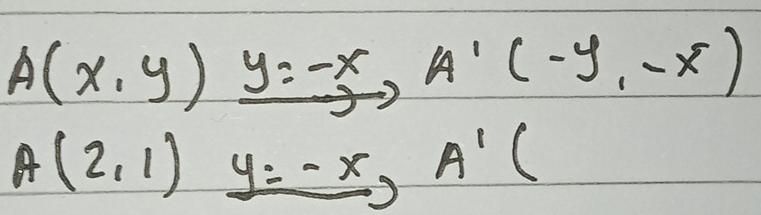 A(x, y) y=-x A'(-y, -x)
A(2, 1) y=-x A'(